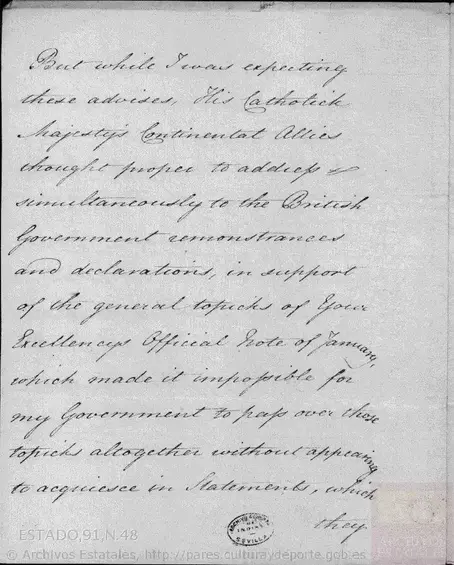 But while I was expecting
these advises, His Catholick
Majesty's Continental Allies
thought proper to address
simultaneously to the British
Government remonstrances
and declarations, in support
of the general topicks of Your
Excellency's Official Note of January,
which made it impossible for
my Government to pass over these
topicks altogether without appearing
to acquiesce in Statements, which
they
ARCHIVO GENERAL
DE
INDIAS
SEVILLA
ESTADO,91,N.48
© Archivos Estatales, http://pares.culturaydeporte.gob.es